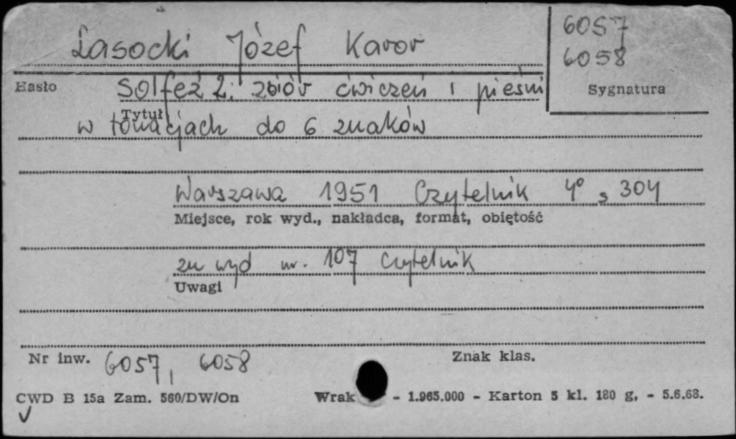 6057
Lasocki Józef Karor
6058
Hasło
Solfeż 2. zbiór ćwiczeń i pieśni
Sygnatura
Tytuł
w tonacjach do 6 znaków
Warszawa 1951 Czytelnik 4° s 304
Miejsce, rok wyd., nakładca, format, objętość
zn wyd nr. 107 Czytelnik
Uwagi
Nr inw. 6057, 6058
Znak klas.
CWD B 15a Zam. 560/DW/On
Wrak - 1.965.000 - Karton 5 kl. 180 g. - 5.6.68.